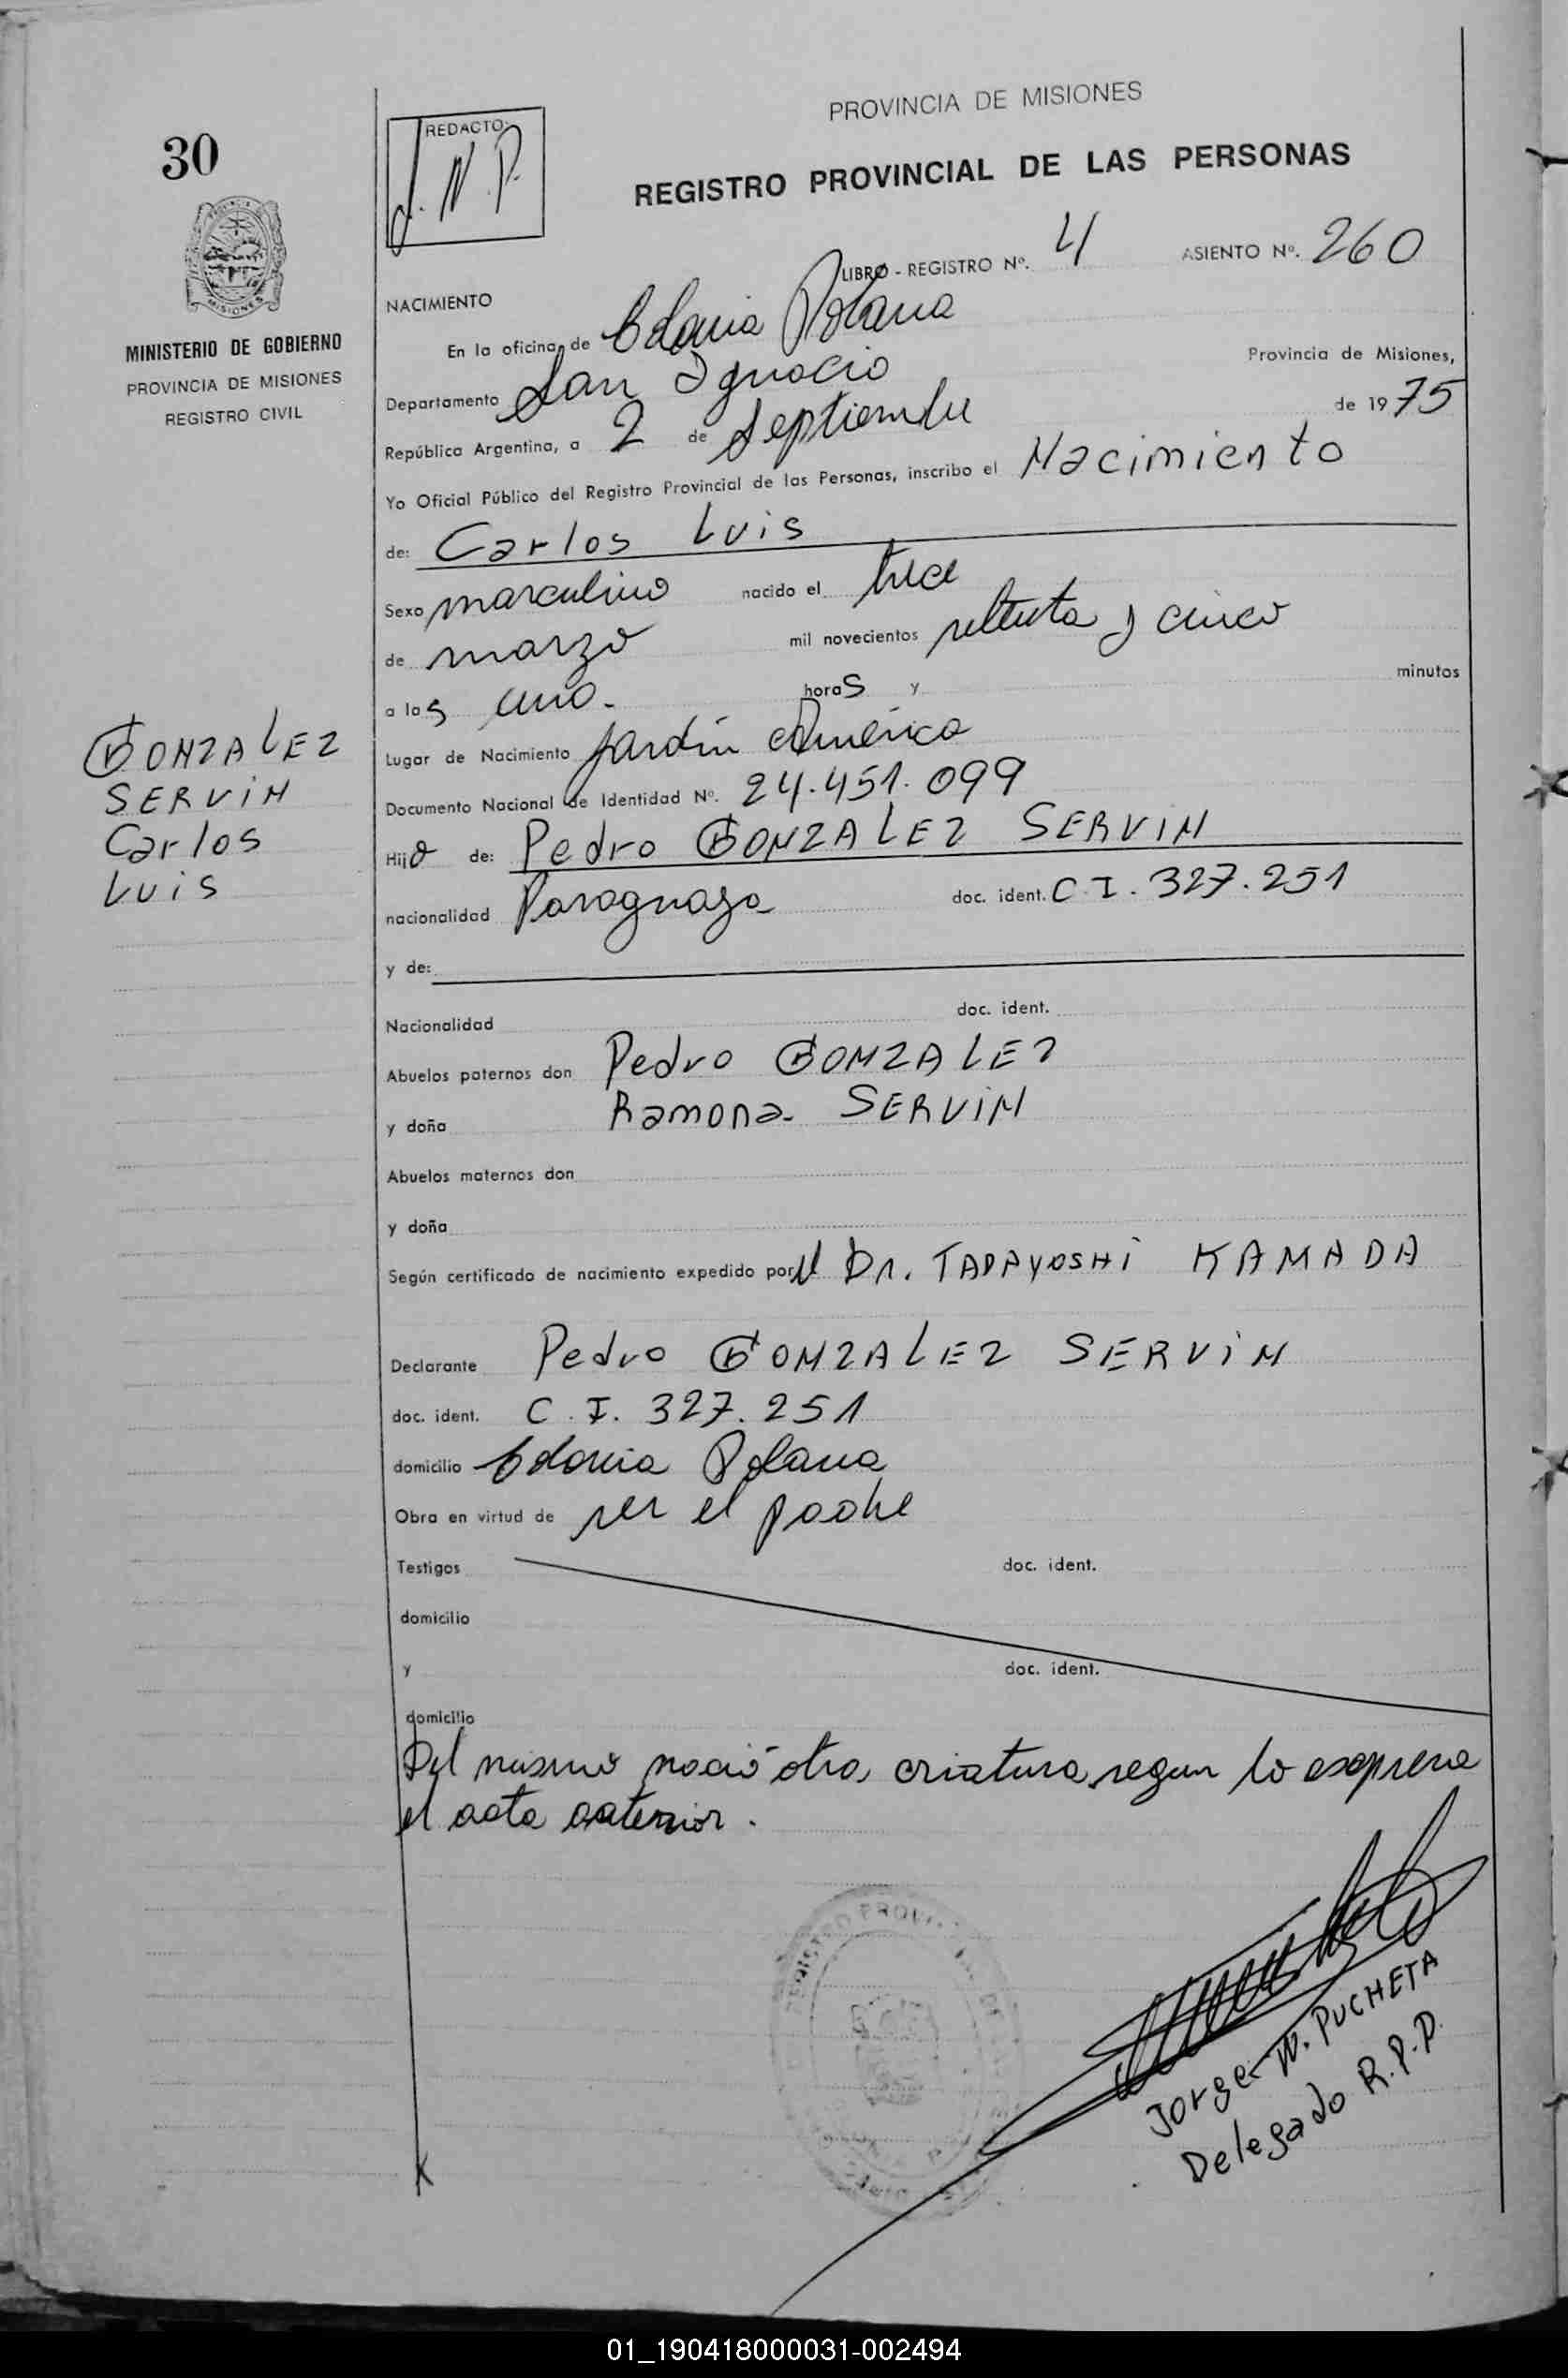 PROVINCIA DE MISIONES
30
REDACTO:
J. N. P.
REGISTRO PROVINCIAL DE LAS PERSONAS
LIBRO - REGISTRO Nº. 4 ASIENTO Nº. 260
MINISTERIO DE GOBIERNO
PROVINCIA DE MISIONES
REGISTRO CIVIL
NACIMIENTO
En la oficina de Colonia Polana
Departamento San Ignacio Provincia de Misiones,
República Argentina, a 2 de Septiembre de 1975
Yo Oficial Público del Registro Provincial de las Personas, inscribo el Nacimiento
de: Carlos Luis
Sexo masculino nacido el trece
de marzo mil novecientos setenta y cinco
a las uno. horas y minutos
GONZALEZ
SERVIN
Carlos
Luis
Lugar de Nacimiento Jardín América
Documento Nacional de Identidad Nº. 24.451.099
Hijo de: Pedro GONZALEZ SERVIN
nacionalidad Paraguaya doc. ident. C.I. 327.251
y de:
Nacionalidad doc. ident.
Abuelos paternos don Pedro GONZALEZ
y doña Ramona SERVIN
Abuelos maternos don
y doña
Según certificado de nacimiento expedido por el Dr. TADAYOSHI KAMADA
Declarante Pedro GONZALEZ SERVIN
doc. ident. C.I. 327.251
domicilio Colonia Polana
Obra en virtud de ser el padre
Testigos doc. ident.
domicilio
y doc. ident.
domicilio
Del mismo nació otra criatura segun lo expresa
el acta anterior.
Jorge N. PUCHETA
Delegado R.P.P.
01_190418000031-002494